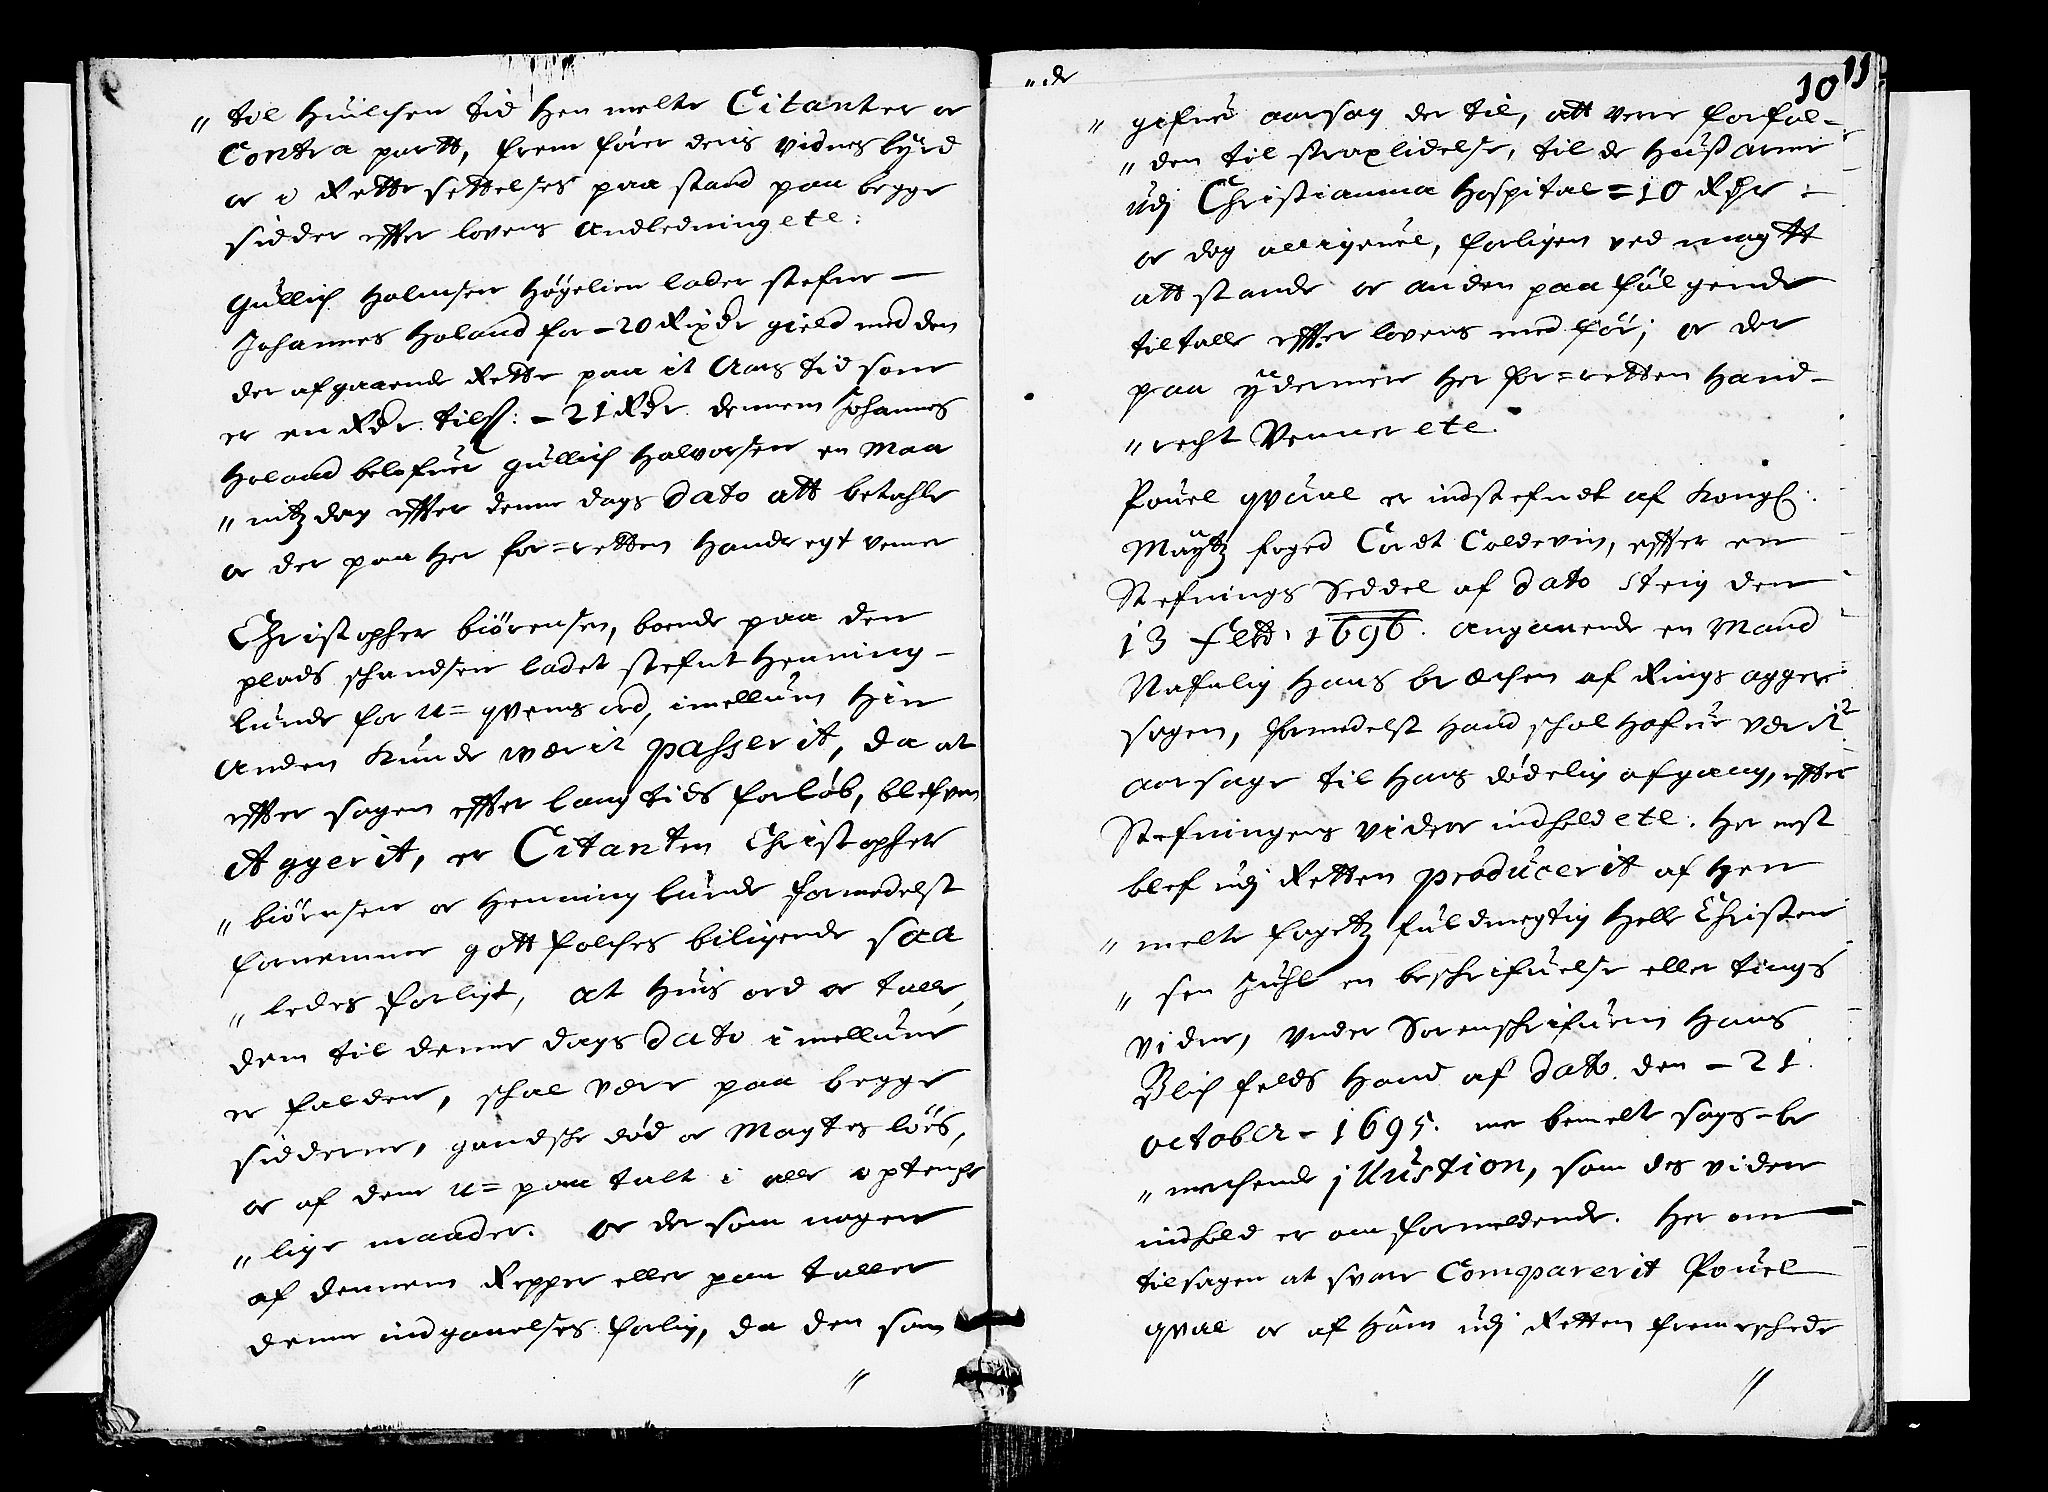 " til huilchen tid hen melte Citanter oc
Contra partt, frem fører deris vidnesbyrd
oc i Rette settelses paa stand paa begge
sidder effter lovens Andledning etc:
Gullich Halvorsen Høyelien lader stefne —
Johannes Holand for – 20 Rixdr gield med den
der afgaaende Rette paa it Aars tid som
er en Rdr. tils: – 21 Rdr. dennem Johannes
Holand belofuer Gullich Halvorsen en Maa
" nitz dag effter denne dags Dato att betahle
oc der paa her for=retten handregt venner
Christopher biørensen, boende paa den
plads schandsen ladet stefnt Henning –
Lunde for u=qvems ord, imellum hin
Anden kunde werit passerit, da at
effter sagen effter lang tids forløb, blefven
Aggerit, er Citanten Christopher
" biørnsen oc Henning Lunde formedelst
fornemme gott folches biligende saa
" ledes forligt, at huis ord oc talle,
dem til denne dags Dato imellum
er falden, schal være paa begge
sidderne, gandsche død oc Magtes løes,
oc af dem u=paa talt i alle optenche
" lige maader. oc der som nogen
af dennem Repper eller paa taller
denne indgaaelses forlig, da den som
"
" de
10 11
" gifued aarsag der til, att vere forfal–
" den til straxlidelse, til de huusarme
udj Christiania Hospital = 10 Rdr :
oc dog alligeuel, forligen ved magtt
att stande oc anden paa følgende
tiltalle effter lovens med før; oc der
paa ydermere her for=retten Hand–
" recht Venner etc.
Pouel qvaal er indstefndt af Kongl:
Maytz foged Cordt Coldevin, effter en
Stefnings Seddel af dato Steig den
13 Febr: 1696. angaaende en Mand
Nafnlig Hans brochen af Rings agger
sogen, formedelst hand schal hafue verit
aarsage til hans dødelig afgang, effter
Stefningens videre indhold etc. Her erst
blef udj Retten producerit af Hen
" melte fogetz fuldmegtig Helle Christen
" sen Juhl en beschrifuelse eller tings
vidne, vnder Sorenschrifuerens Hans
Blich felds Hand af Dato. den – 21.
october – 1695. mer bemelte sags – be
" merchende jllustion, som des videre
indhold er om formeldende. Her om
til sagen at svare Comparerit Pouel
qvaal oc af ham udj Retten fremeschede
"